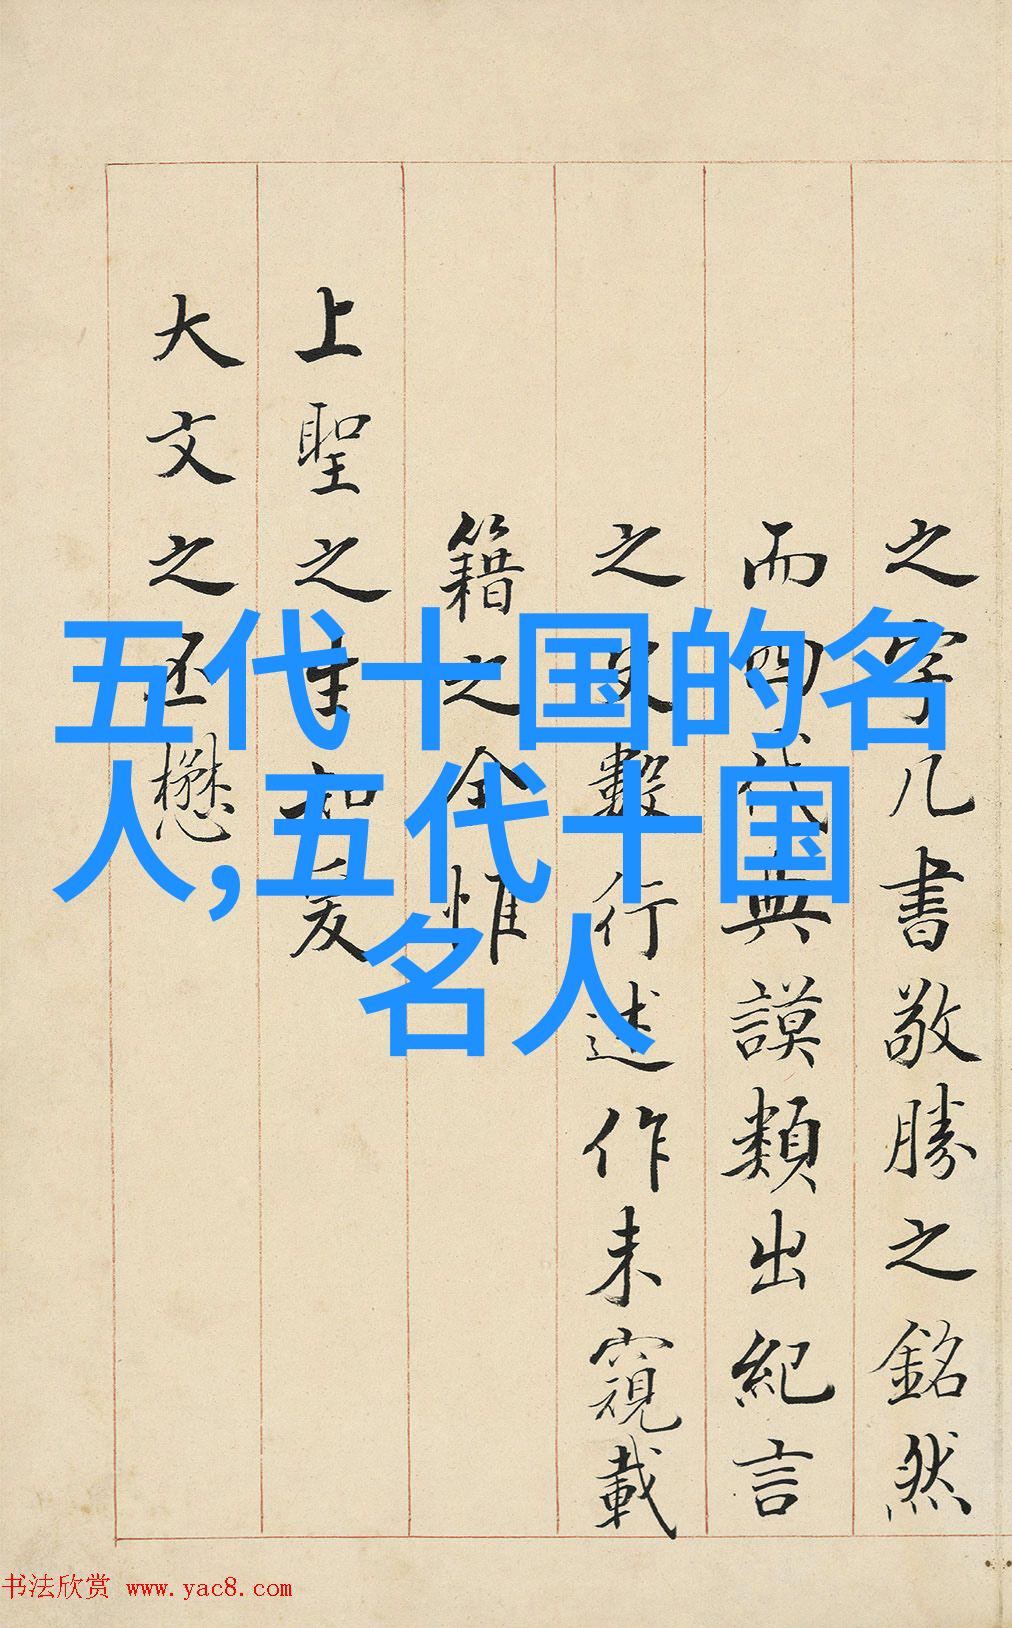 之字几書敬勝之銘然
而四代典謨類出紀言
之史數行述作未窺載
籍之全惟
上聖之生知爰
大文之丕懋
五代十国的名
人,五代十国
名人
书法欣赏 www.yac8.com